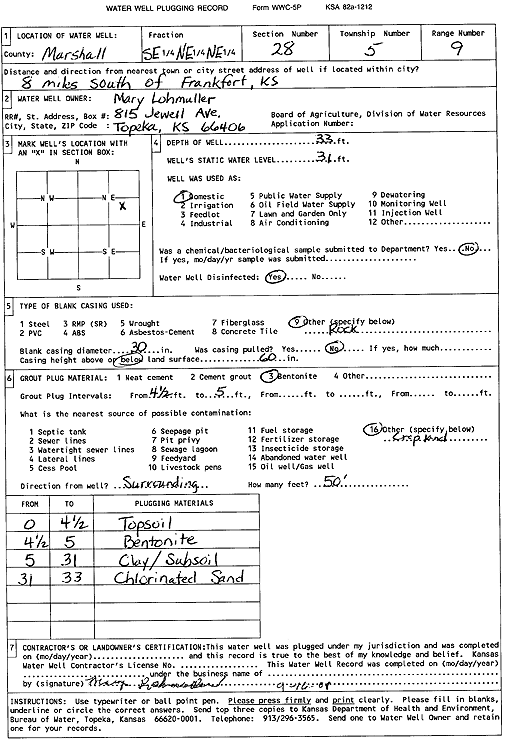 WATER WELL PLUGGING RECORD Form WWC-5P KSA 82a-1212
1 LOCATION OF WATER WELL: Fraction Section Number Township Number Range Number
County: Marshall SE 1/4 NE 1/4 NE 1/4 28 5 9
Distance and direction from nearest town or city street address of well if located within city?
8 miles South of Frankfort, KS
2 WATER WELL OWNER: Mary Lohmuller
RR#, St. Address, Box #: 815 Jewell Ave. Board of Agriculture, Division of Water Resources
City, State, ZIP Code : Topeka, KS 66406 Application Number:
3 MARK WELL'S LOCATION WITH AN "X" IN SECTION BOX:
N
NW NE
X
W E
SW SE
S
4 DEPTH OF WELL..........33.ft.
WELL'S STATIC WATER LEVEL......31.ft.
WELL WAS USED AS:
1 Domestic 5 Public Water Supply 9 Dewatering
2 Irrigation 6 Oil Field Water Supply 10 Monitoring Well
3 Feedlot 7 Lawn and Garden Only 11 Injection Well
4 Industrial 8 Air Conditioning 12 Other..........
Was a chemical/bacteriological sample submitted to Department? Yes...No...
If yes, mo/day/yr sample was submitted..........
Water Well Disinfected: Yes..... No......
5 TYPE OF BLANK CASING USED:
1 Steel 3 RMP (SR) 5 Wrought 7 Fiberglass 9 Other (specify below)
2 PVC 4 ABS 6 Asbestos-Cement 8 Concrete Tile ....Rock....
Blank casing diameter...30...in. Was casing pulled? Yes...... No...... If yes, how much........
Casing height above or below land surface..........60...in.
6 GROUT PLUG MATERIAL: 1 Neat cement 2 Cement grout 3 Bentonite 4 Other..........
Grout Plug Intervals: From.4½.ft. to..5..ft., From......ft. to ......ft., From...... to......ft.
What is the nearest source of possible contamination:
1 Septic tank 6 Seepage pit 11 Fuel storage 16 Other (specify below)
2 Sewer lines 7 Pit privy 12 Fertilizer storage
3 Watertight sewer lines 8 Sewage lagoon 13 Insecticide storage
4 Lateral lines 9 Feedyard 14 Abandoned water well
5 Cess Pool 10 Livestock pens 15 Oil well/Gas well
Direction from well? ..Surrounding.. How many feet? ..50'
FROM TO PLUGGING MATERIALS
0 4½ Topsoil
4½ 5 Bentonite
5 31 Clay/Subsoil
31 33 Chlorinated Sand
7 CONTRACTOR'S OR LANDOWNER'S CERTIFICATION:This water well was plugged under my jurisdiction and was completed
on (mo/day/year)..........and this record is true to the best of my knowledge and belief. Kansas
Water Well Contractor's License No. .......... This Water Well Record was completed on (mo/day/year)
..........under the business name of ..........
by (signature) Mary Lohmuller
INSTRUCTIONS: Use typewriter or ball point pen. Please press firmly and print clearly. Please fill in blanks,
underline or circle the correct answers. Send top three copies to Kansas Department of Health and Environment,
Bureau of Water, Topeka, Kansas 66620-0001. Telephone: 913/296-3565. Send one to Water Well Owner and retain
one for your records.